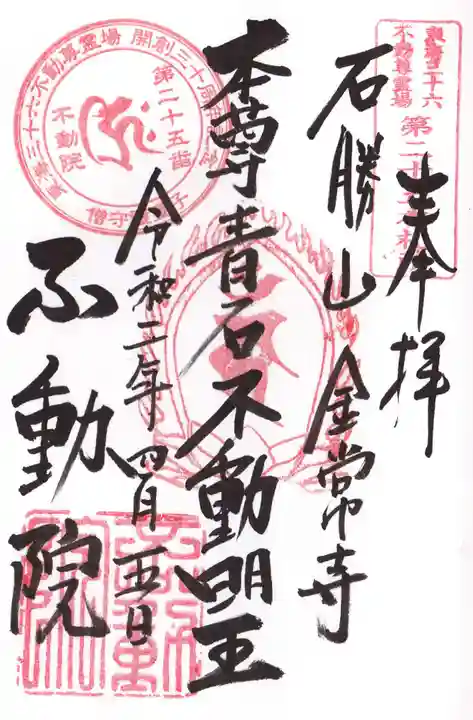 奉拝
東海三十六
不動尊霊場
石勝山金常寺
本尊青石不動明王
令和二年四月五日
不動院
東海三十六不動尊霊場 開創三十周年
第二十五番
不動院